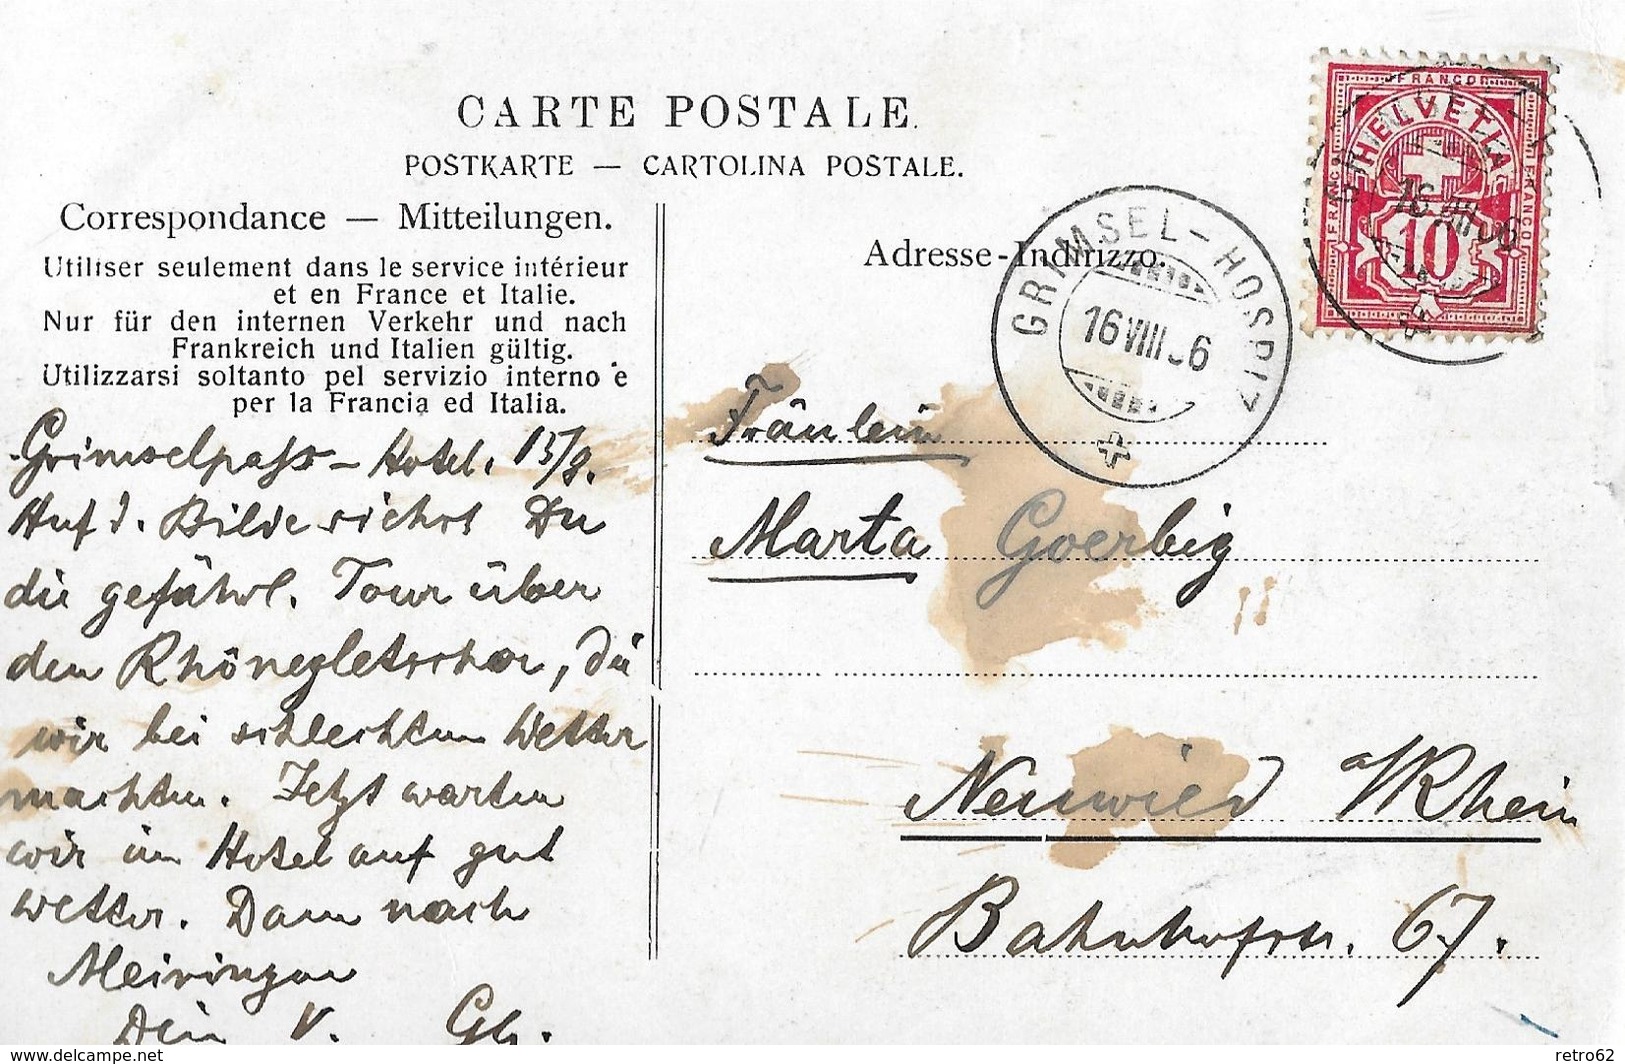 CARTE POSTALE.
POSTKARTE — CARTOLINA POSTALE.
Correspondance — Mitteilungen.
Utiliser seulement dans le service intérieur
et en France et Italie.
Nur für den internen Verkehr und nach
Frankreich und Italien gültig.
Utilizzarsi soltanto pel servizio interno e
per la Francia ed Italia.
Grimselpass-Hotel. 15/8.
Auf d. Bilde siehst Du
die gefährl. Tour über
den Rhônegletscher, die
wir bei schlechtem Wetter
machten. Jetzt warten
wir im Hotel auf gut
Wetter. Dann nach
Meiringen
Dein V. Gb.
Adresse-Indirizzo.
GRIMSEL-HOSPIZ
16 VIII 06
FRANCO
HELVETIA
FRANCO
FRANCO
10
16 VIII 06
Fräulein
Marta Goerbig
Neuwied a/Rhein
Bahnhofstr. 67.
delcampe.net
retro62